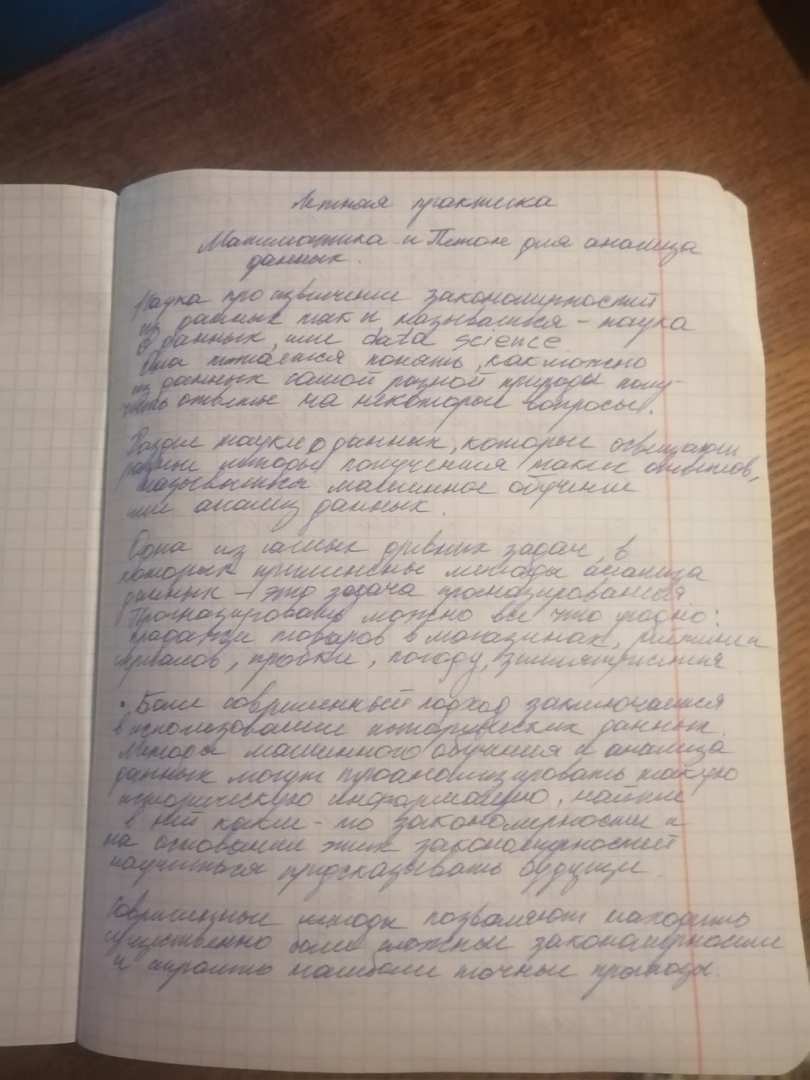 Летняя практика
Математика и Питон для анализа
данных.
Наука про извлечение закономерностей
из данных так и называется - наука
о данных, или data science
Она пытается понять, как можно
из данных самой разной природы полу-
чить ответы на некоторые вопросы.
Раздел науки о данных, которые освещают
разные методы получения таких ответов,
называются машинное обучение
или анализ данных.
Одна из самых древних задач, в
которых применены методы анализа
данных - это задача прогнозирования
Прогнозировать можно все что угодно:
продажи товаров в магазинах, рейтинги
сериалов, пробки, погоду, землетрясения
• Более совершенный подход заключается
в использовании исторических данных.
Методы машинного обучения и анализа
данных могут проанализировать такую
историческую информацию, найти
в ней какие-то закономерности и
на основании этих закономерностей
научиться предсказывать будущее.
Современные методы позволяют находить
существенно более сложные закономерности
и строить наиболее точные прогнозы.